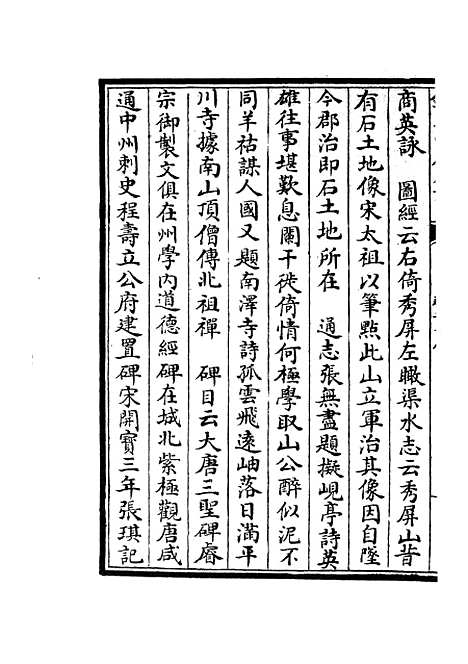 商英詠　圖經云右倚秀屏左瞰渠水志云秀屏山昔
有石土地像宋太祖以筆點此山立軍治其像因自墜
今郡治即石土地所在　通志張無盡題擬峴亭詩英
雄往事堪歎息闌干徙倚情何極學取山公醉似泥不
同羊祜謀人國又題南澤寺詩孤雲飛遠岫落日滿平
川寺據南山頂僧傳北祖禪　碑目云大唐三聖碑睿
宗御製文俱在州學内道德經碑在城北紫極觀唐咸
通中州刺史程壽立公府建置碑宋開寶三年張琪記